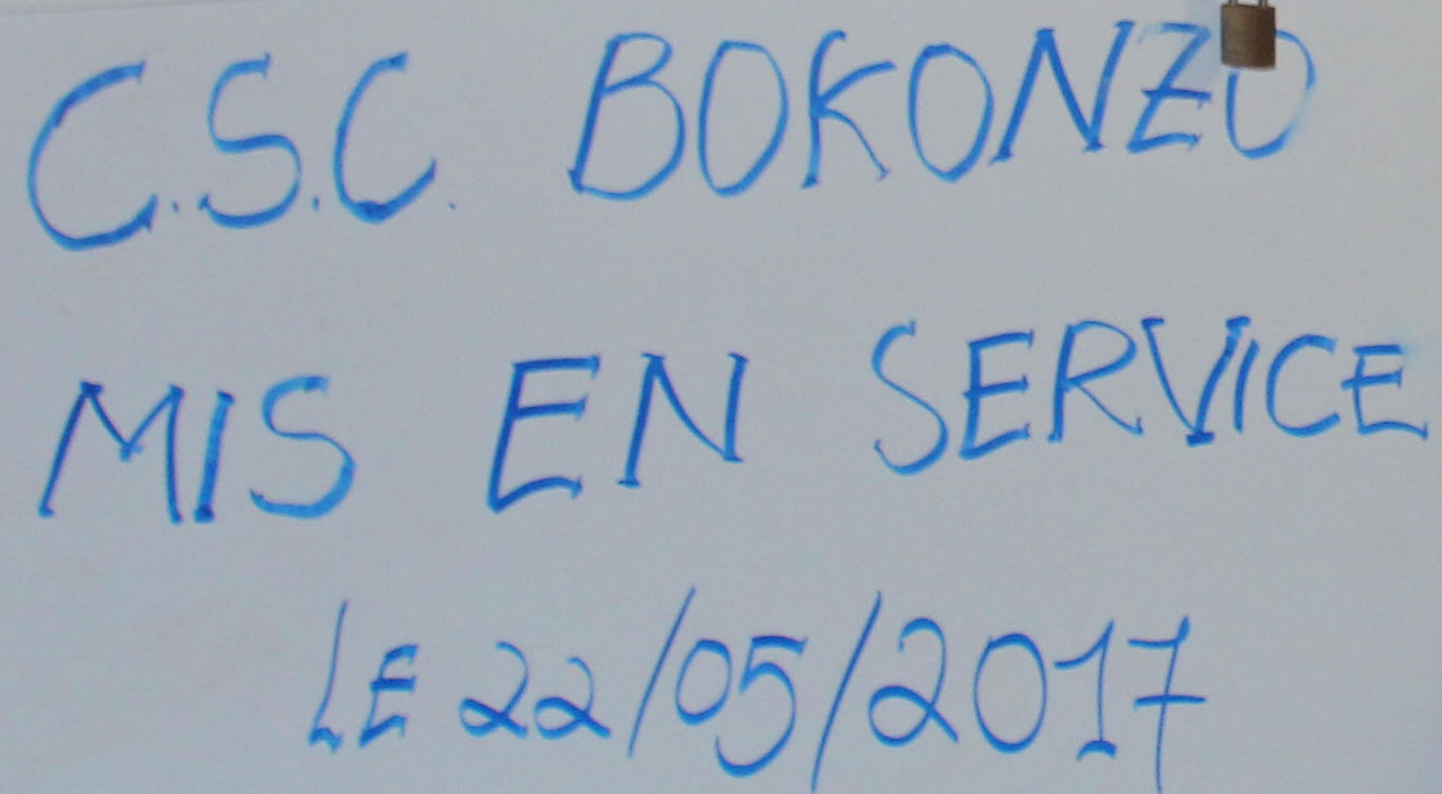 C.S.C. BOKONZO
MIS EN SERVICE
LE 22/05/2017